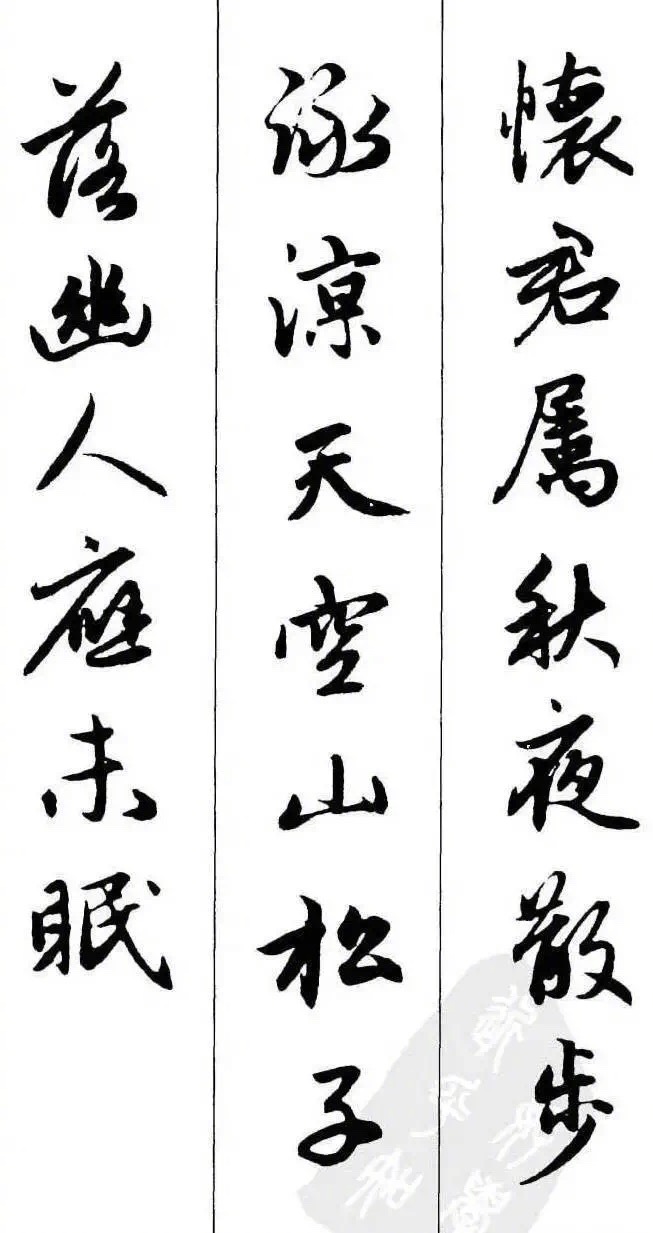 懷君属秋夜散步
詠涼天空山松子
落幽人應未眠